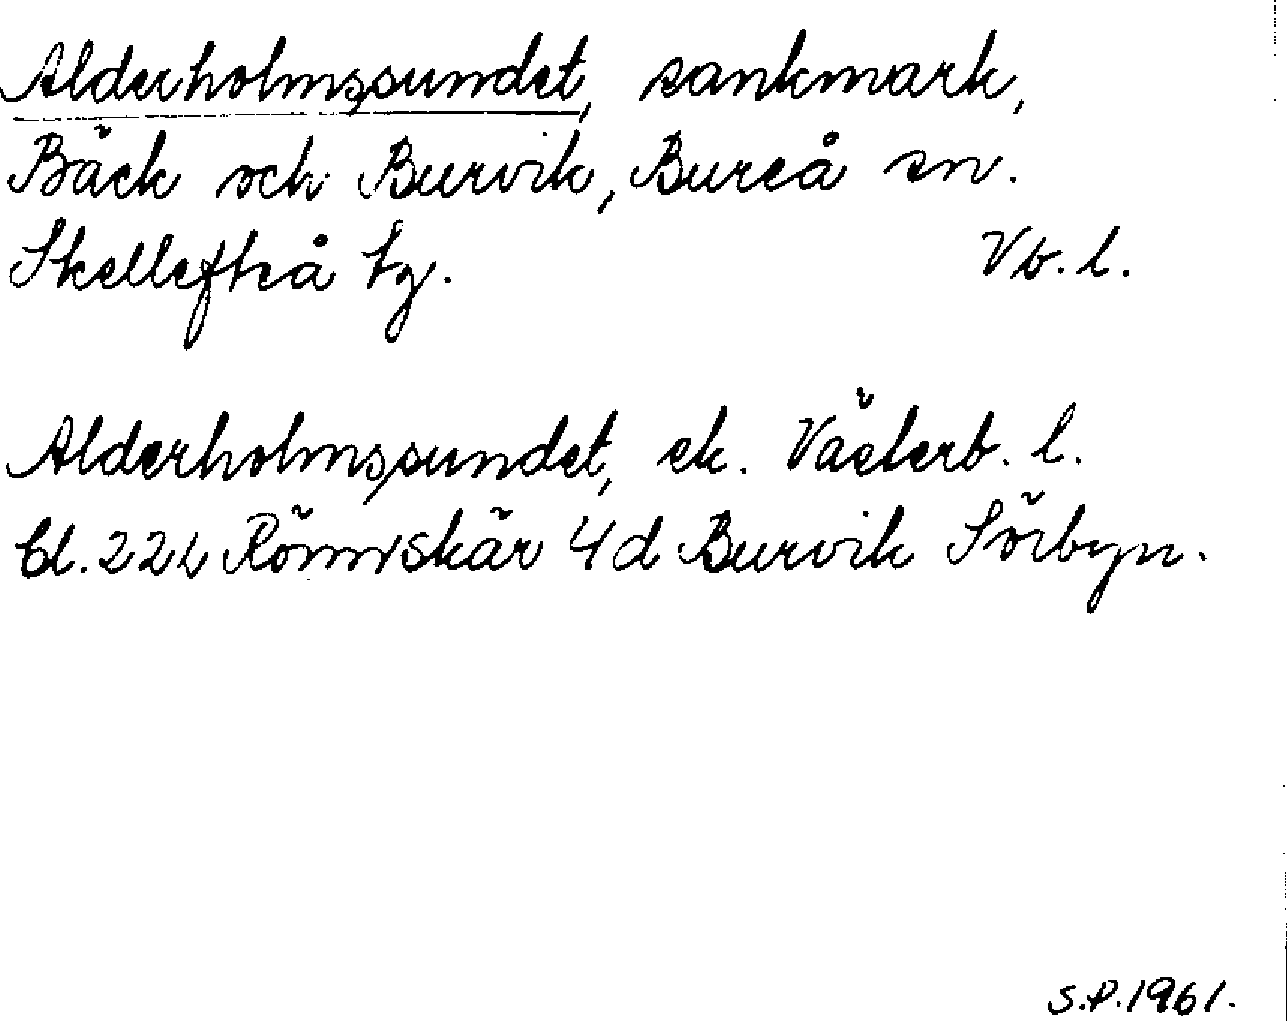 Alderholmssundet, sankmark,
Bäck och Burvik, Bureå sn.
Skellefteå tg. Vb. l.
Alderholmssundet, ek. Västerb. l.
Bl. 22L Rönnskär 4d Burvik Sörbyn.
S.P. 1961.